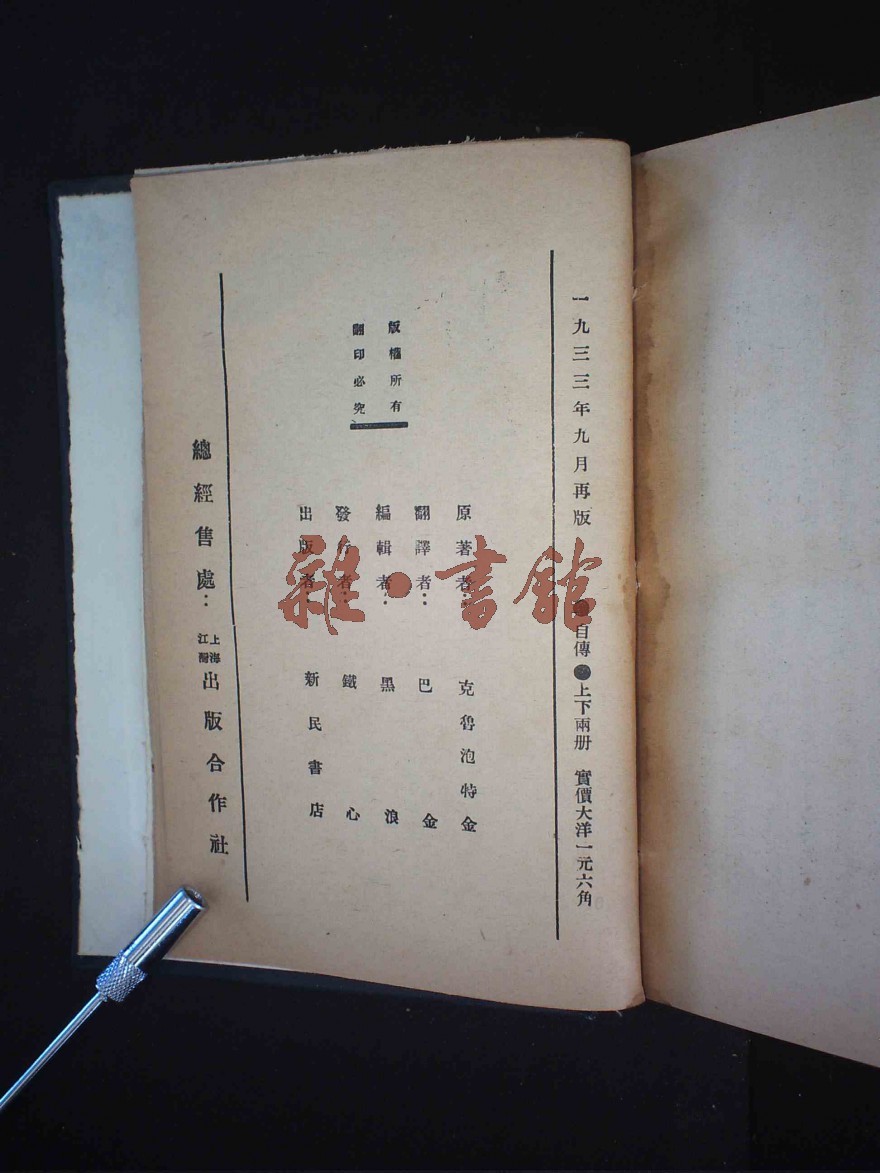 一九三三年九月再版 ●自傳●上下兩册 實價大洋一元六角
版權所有
翻印必究
原著者：克魯泡特金
翻譯者：巴金
編輯者：黑浪
發行者：鐵心
出版者：新民書店
總經售處：上海江灣出版合作社
雜·書館